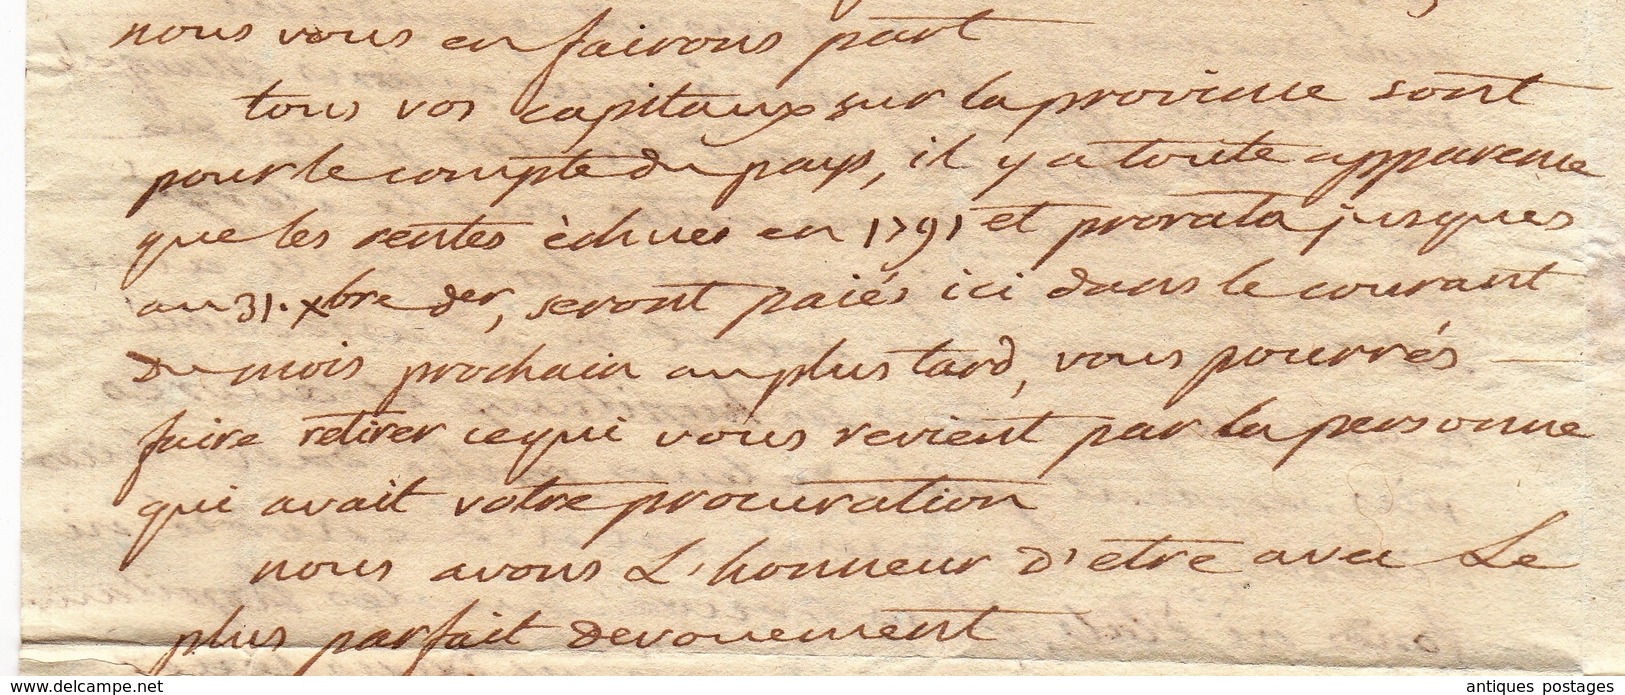 nous vous en fairons part
tous vos capitaux sur la province sont
pour le compte du pays, il y a toute apparence
que les rentes èchues en 1791 et prorata jusques
au 31. xbre der, seront paiés ici dans le courant
Du mois prochain au plus tard, vous pourrés
faire retirer ce qui vous revient par la personne
qui avait votre procuration
nous avons L'honneur d'etre avec Le
plus parfait devouement
www.delcampe.net
antiques postages